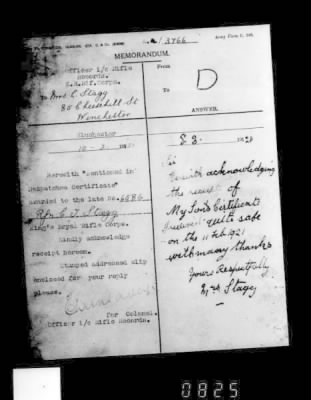 3766
Army Form C. 348.
MEMORANDUM.
Officer i/c Rifle
Records.
K.R.Rif.Corps.
To Mrs C. Stagg
80 Cheesehill St
Winchester
Winchester
10 - 3
Herewith "mentioned in
Despatches Certificate"
awarded to the late No.
Rfn C. J. Stagg
King's Royal Rifle Corps.
Kindly acknowledge
receipt hereon.
Stamped addressed slip
enclosed for your reply
please.
for Colonel.
Officer i/c Rifle Records.
From
To
D
ANSWER.
Sir
Herewith acknowledging
the receipt of
My Son's Certificate
quite safe
on the 11 Feb 1921
with many thanks
Yours Respectfully
Mrs Stagg
0825